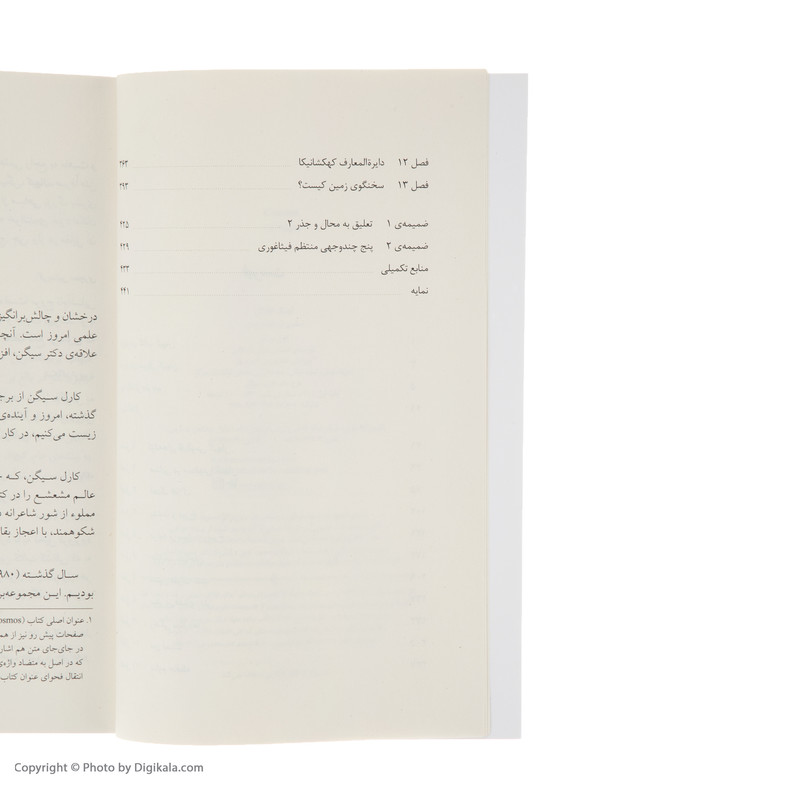 فصل ۱۲ دایرةالمعارف کهکشانیکا ۳۶۳
فصل ۱۳ سخنگوی زمین کیست؟ ۳۹۳
ضمیمه‌ی ۱ تعلیق به محال و جذر ۲ ۴۲۵
ضمیمه‌ی ۲ پنج چندوجهی منتظم فیثاغوری ۴۲۹
منابع تکمیلی ۴۳۳
نمایه ۴۴۱
درخشان و چالش‌برانگیز
علمی امروز است. آنچه
علاقه‌ی دکتر سیگن،
کارل سیگن از
گذشته، امروز و آینده‌ی
زیست می‌کنیم، در کار
کارل سیگن، که
عالم مشعشع را در
مملوء از شور شاعرانه
شکوهمند، با اعجاز
سال گذشته (۹۸۰
بودیم. این
۱. عنوان اصلی کتاب (osmos
صفحات پیش رو نیز از
در جای‌جای متن هم
که در اصل به متضاد
انتقال فحوای عنوان کتاب
Copyright © Photo by Digikala.com